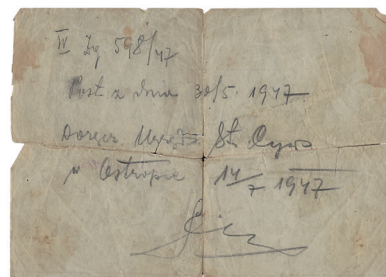 IV Zg 598/47
Post z dnia 30/5. 1947.
doręcz. Urz. St. Cyw.
w Ostropie 14/7 1947